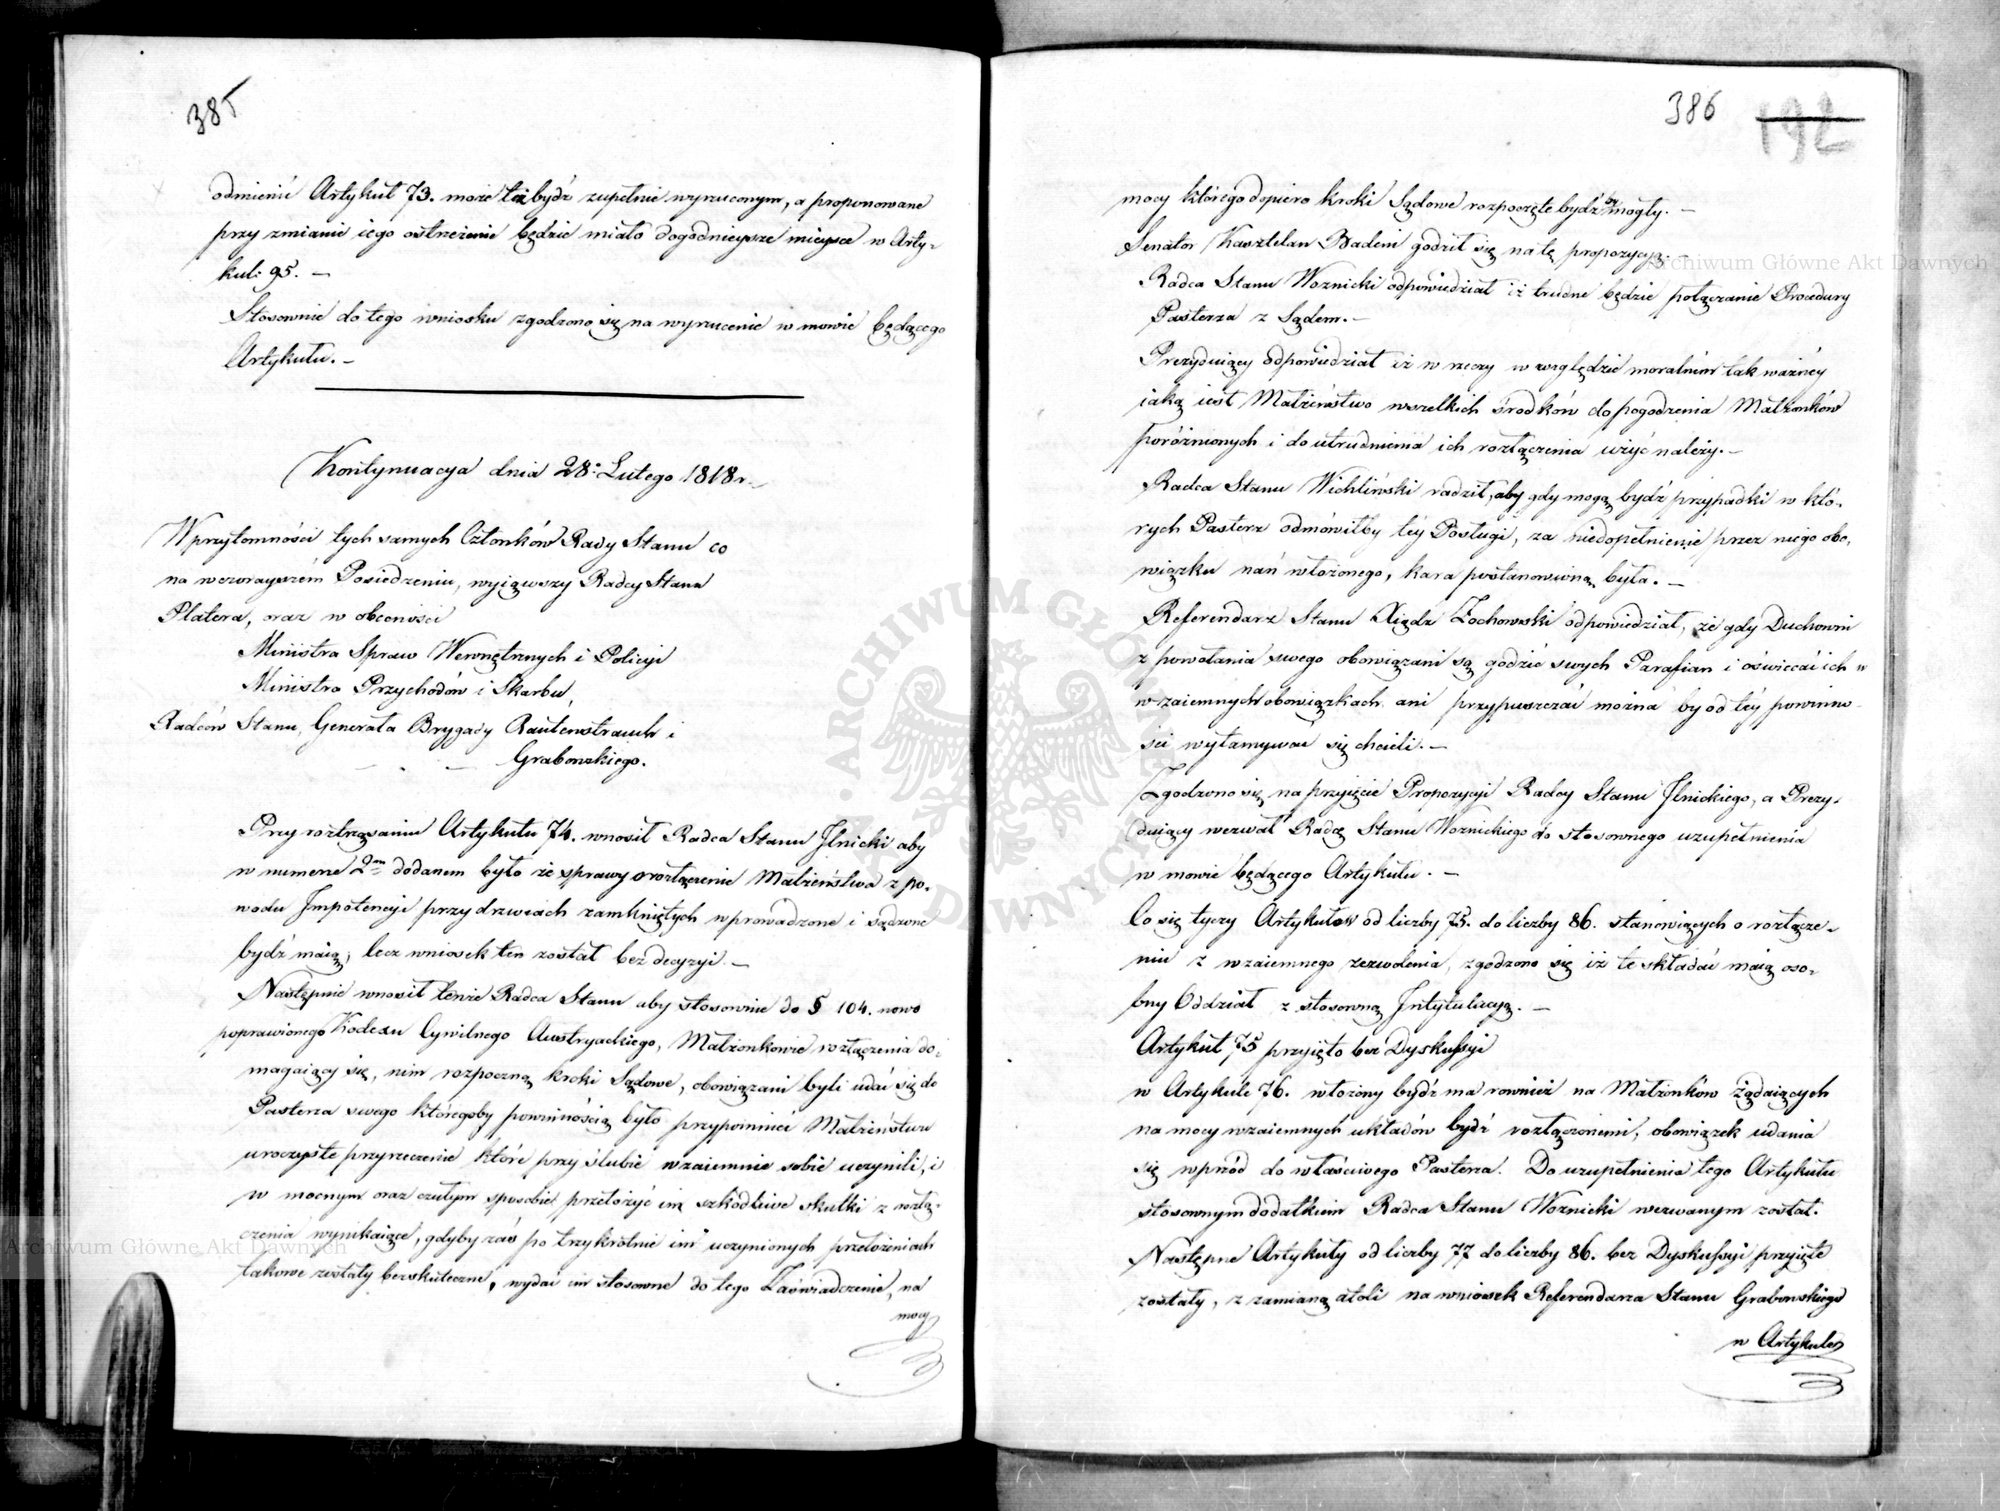 385
odmienić Artykuł 73. może też bydź zupełnie wyrzuconym, a proponowane
przy zmianie iego ostrzeżenie będzie miało dogodnieysze mieysce w Arty-
kul: 95. —
Stosownie do tego wniosku zgodzono się na wyrzucenie w mowie będącego
Artykułu. —
Kontynuacya dnia 28. Lutego 1818 r.
W przytomności tych samych Członków Rady Stanu co
na wczorayszém Posiedzeniu, wyiąwszy Radcy Stanu
Platera, oraz w obecności
Ministra Spraw Wewnętrznych i Policyi
Ministra Przychodów i Skarbu,
Radców Stanu, Generała Brygady Rautenstrauch i
Grabowskiego.
Przy roztrząsaniu Artykułu 74. wnosił Radca Stanu Ilnicki aby
w numerze 2m dodanem było że sprawy o rozłączenie Małżeństwa z po-
wodu Impotencyi przy drzwiach zamkniętych wprowadzone i sądzone
bydź maią; lecz wniosek ten został bez decyzyi. —
Następnie wnosił tenże Radca Stanu aby stosownie do § 104. nowo
poprawionego Kodexu Cywilnego Austryackiego, Małżonkowie rozłączenia do-
magaiący się, nim rozpoczną kroki Sądowe, obowiązani byli udać się do
Pasterza swego któregoby powinnością było przypomnieć Małżeństwu
uroczyste przyrzeczenie które przy ślubie wzaiemnie sobie uczynili, i
w mocnym oraz czułym sposobie przełożyć im szkodliwe skutki z rozłą-
czenia wynikaiące, gdyby zaś po trzykrotnie im uczynionych przełożeniach
takowe zostały bezskuteczne, wydać im stosowne do tego Zaświadczenie, na
mocy
386 192
mocy którego dopiero kroki Sądowe rozpoczęte bydź by mogły. —
Senator Kasztelan Badeni godził się na tę propozycyą. —
Radca Stanu Woznicki odpowiedział iż trudne będzie połączanie Procedury
Pasterza z Sądem. —
Prezyduiący odpowiedział iż w rzeczy w względzie moralnym tak ważnéy
iaką iest Małżeństwo wszelkich środków do pogodzenia Małżonków
poróżnionych i do utrudnienia ich rozłączenia użyć należy. —
Radca Stanu Wichliński radził, aby gdy mogą bydź przypadki w któ-
rych Pasterz odmówiłby téy Posługi, za niedopełnienie przez niego obo-
wiązku nań włożonego, kara postanowioną była. —
Referendarz Stanu Xiądz Zochowski odpowiedział, że gdy Duchowni
z powołania swego obowiązani są godzić swych Parafian i oświecać ich w
wzaiemnych obowiązkach ani przypuszczać można by od téy powinno-
ści wyłamywać się chcieli. —
Zgodzono się na przyięcie Propozycyi Radcy Stanu Ilnickiego, a Prezy-
duiący wezwał Radcę Stanu Woznickiego do stosownego uzupełnienia
w mowie będącego Artykułu. —
Co się tyczy Artykułów od liczby 75. do liczby 86. stanowiących o rozłącze-
niu z wzaiemnego zezwolenia, zgodzono się iż te składać maią oso-
bny Oddział z stosowną Intytulacyą. —
Artykuł 75 przyięto bez Dyskussyi
w Artykule 76. włożony bydź ma rownież na Małżonków żądaiących
na mocy wzaiemnych układów bydź rozłączonemi, obowiązek udania
się wprzód do właściwego Pasterza. Do uzupełnienia tego Artykułu
stosownym dodatkiem Radca Stanu Woznicki wezwanym został.
Następne Artykuły od liczby 77 do liczby 86. bez Dyskussyi przyięte
zostały, z zamianą atoli na wniosek Referendarza Stanu Grabowskiego
w Artykule
Archiwum Główne Akt Dawnych
Archiwum Główne Akt Dawnych
ARCHIWUM GŁÓWNE AKT DAWNYCH